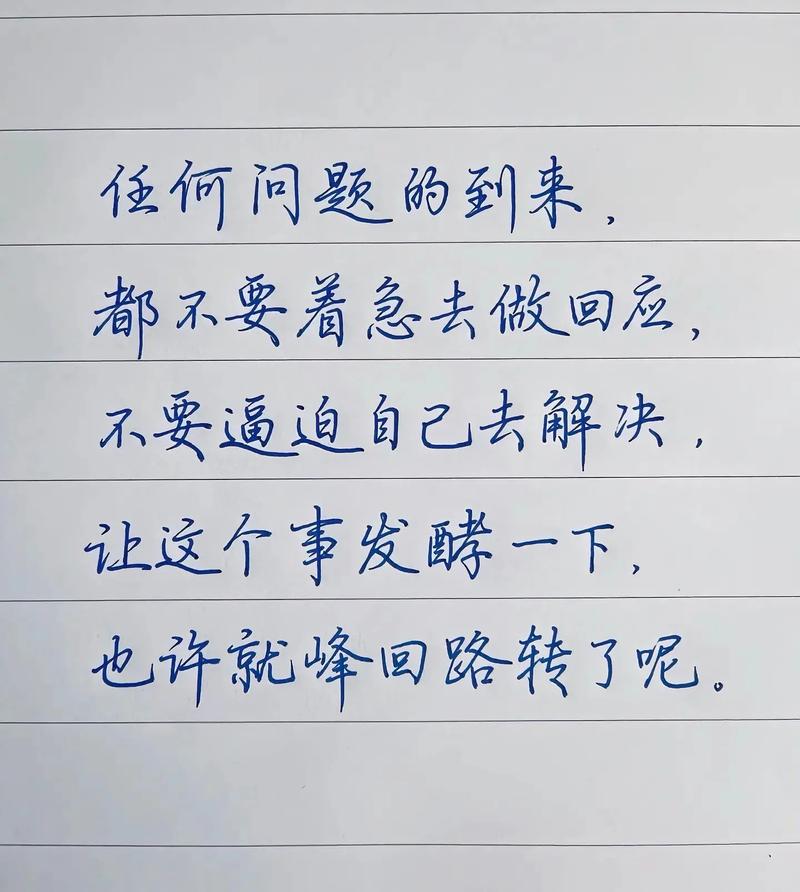 任何问题的到来，
都不要着急去做回应，
不要逼迫自己去解决，
让这个事发酵一下，
也许就峰回路转了呢。